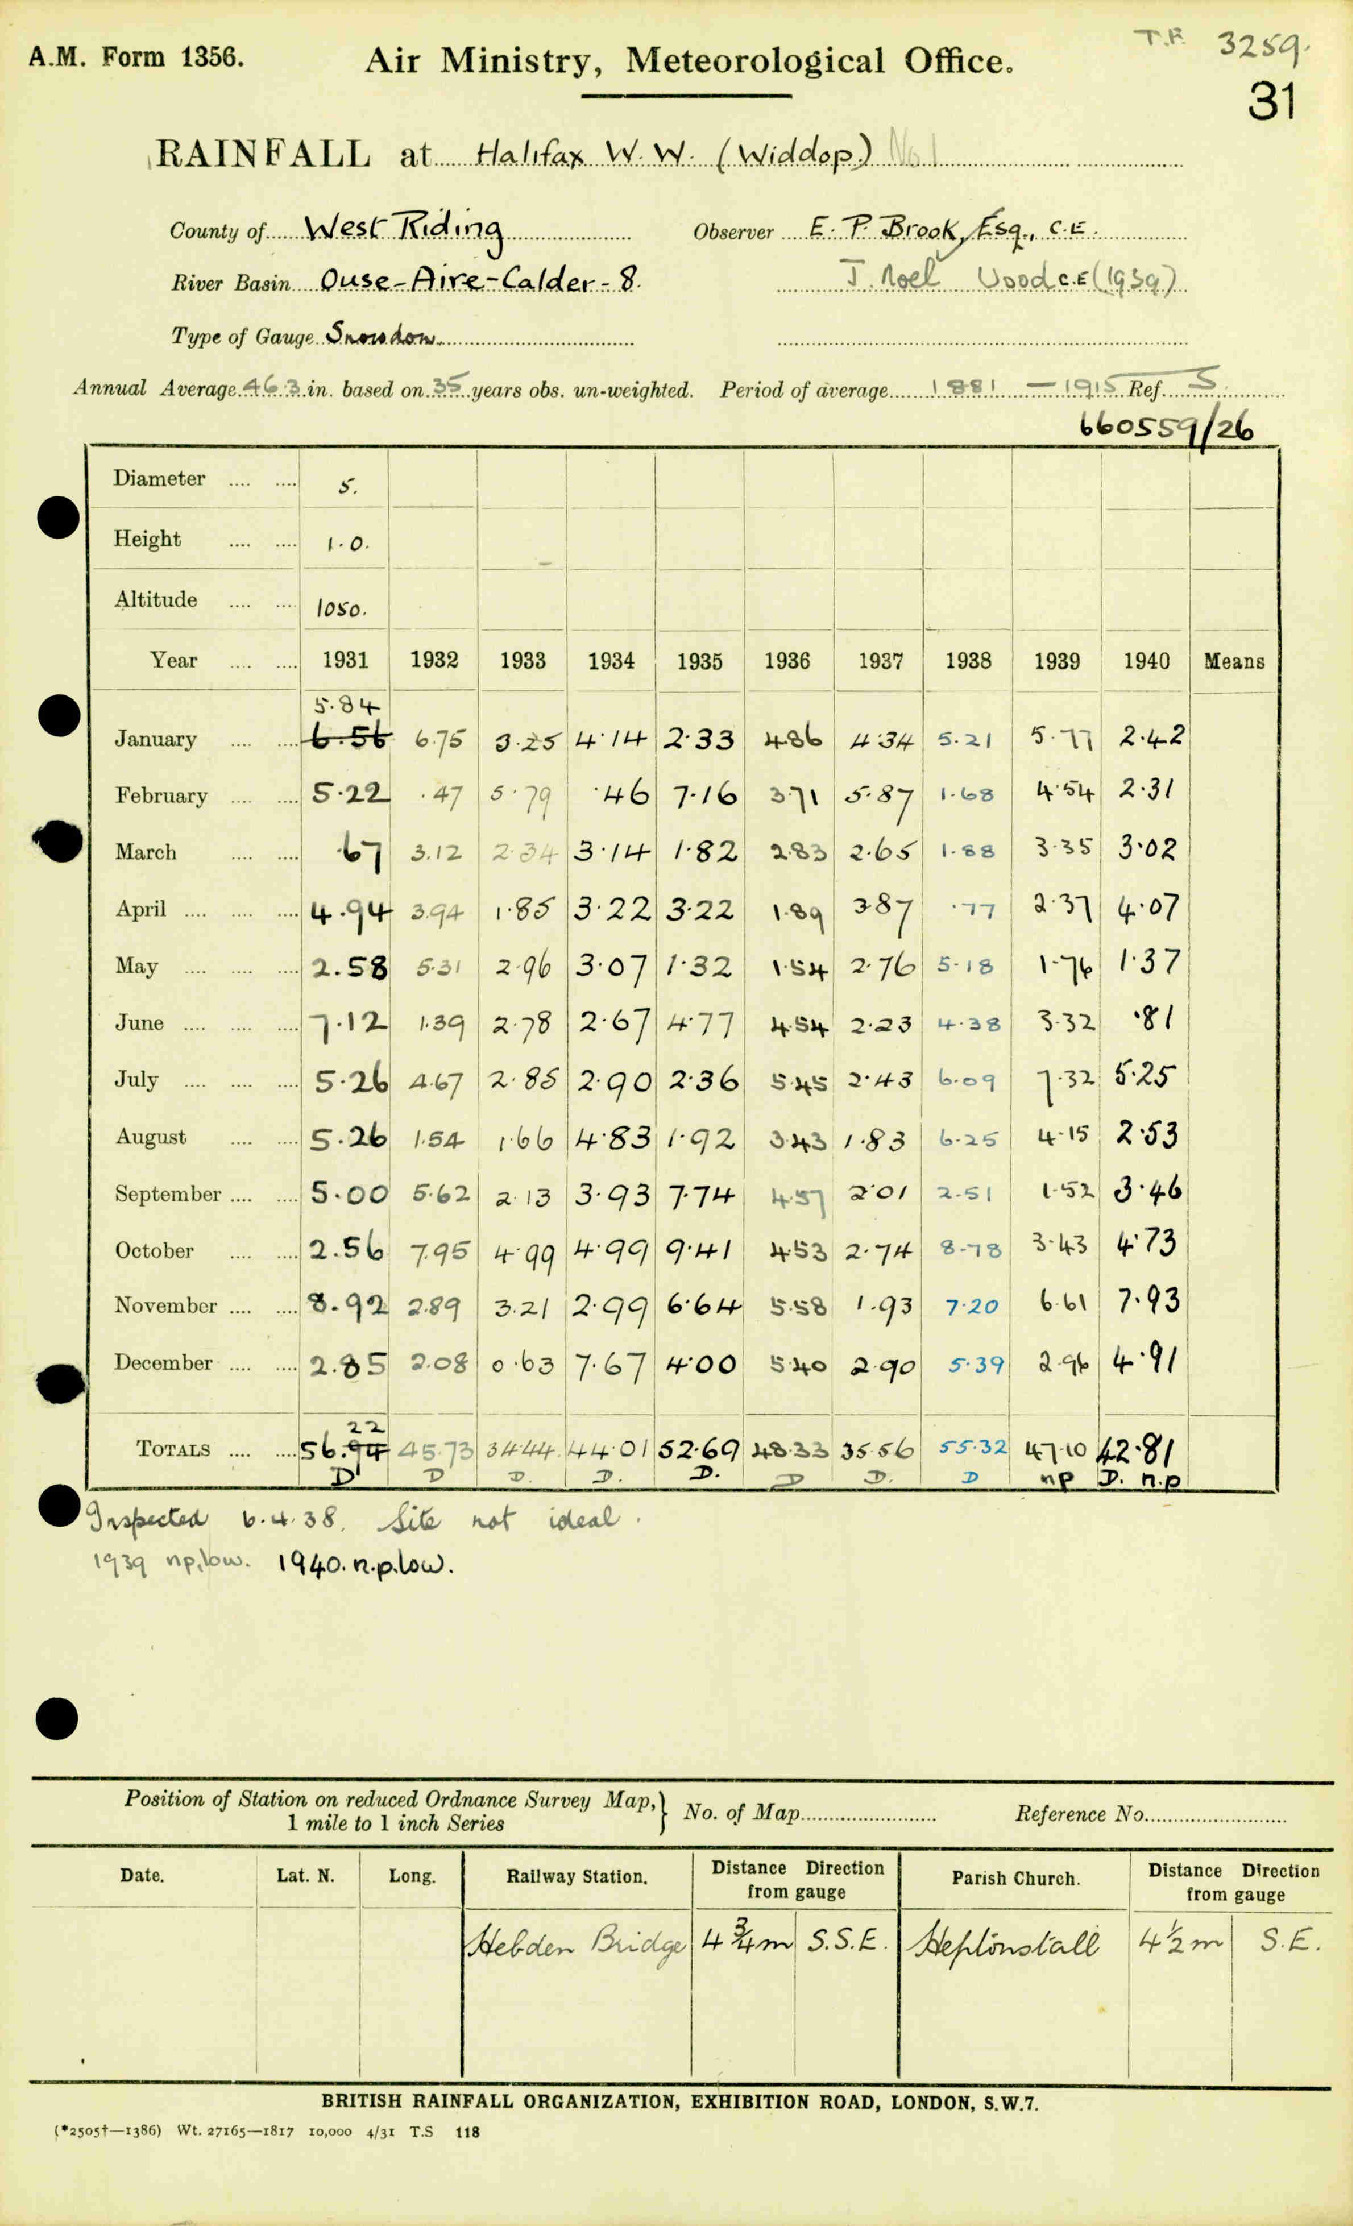 T.R. 3259.
A.M. Form 1356. Air Ministry, Meteorological Office.
31
RAINFALL at Halifax W.W. (Widdop) No 1
County of West Riding Observer E. P. Brook, Esq., C.E.
River Basin Ouse-Aire-Calder-8. J. Noel Wood C.E (1939)
Type of Gauge Snowdon
Annual Average 46.3 in. based on 35 years obs. un-weighted. Period of average 1881 - 1915 Ref. S.
660559/26
Diameter 5.
Height 1.0.
Altitude 1050.
Year 1931 1932 1933 1934 1935 1936 1937 1938 1939 1940 Means
5.84
January 6.56 6.75 3.25 4.14 2.33 4.86 4.34 5.21 5.77 2.42
February 5.22 .47 5.79 .46 7.16 3.71 5.87 1.68 4.54 2.31
March .67 3.12 2.34 3.14 1.82 2.83 2.65 1.88 3.35 3.02
April 4.94 3.94 1.85 3.22 3.22 1.89 3.87 .77 2.37 4.07
May 2.58 5.31 2.96 3.07 1.32 1.54 2.76 5.18 1.76 1.37
June 7.12 1.39 2.78 2.67 4.77 4.54 2.23 4.38 3.32 .81
July 5.26 4.67 2.85 2.90 2.36 5.45 2.43 6.09 7.32 5.25
August 5.26 1.54 1.66 4.83 1.92 3.43 1.83 6.25 4.15 2.53
September 5.00 5.62 2.13 3.93 7.74 4.57 2.01 2.51 1.52 3.46
October 2.56 7.95 4.99 4.99 9.41 4.53 2.74 8.78 3.43 4.73
November 8.92 2.89 3.21 2.99 6.64 5.58 1.93 7.20 6.61 7.93
December 2.85 2.08 0.63 7.67 4.00 5.40 2.90 5.39 2.96 4.91
22
TOTALS 56.94 45.73 34.44 44.01 52.69 48.33 35.56 55.32 47.10 42.81
D D D. D. D. D D. D np D. n.p
Inspected 6.4.38. Site not ideal.
1939 np, low. 1940. n.p. low.
Position of Station on reduced Ordnance Survey Map, 1 mile to 1 inch Series } No. of Map Reference No.
Date. Lat. N. Long. Railway Station. Distance Direction from gauge Parish Church. Distance Direction from gauge
Hebden Bridge 4 3/4 m S.S.E. Heptonstall 4 1/2 m S.E.
BRITISH RAINFALL ORGANIZATION, EXHIBITION ROAD, LONDON, S.W.7.
(*2505†—1386) Wt. 27165—1817 10,000 4/31 T.S 118